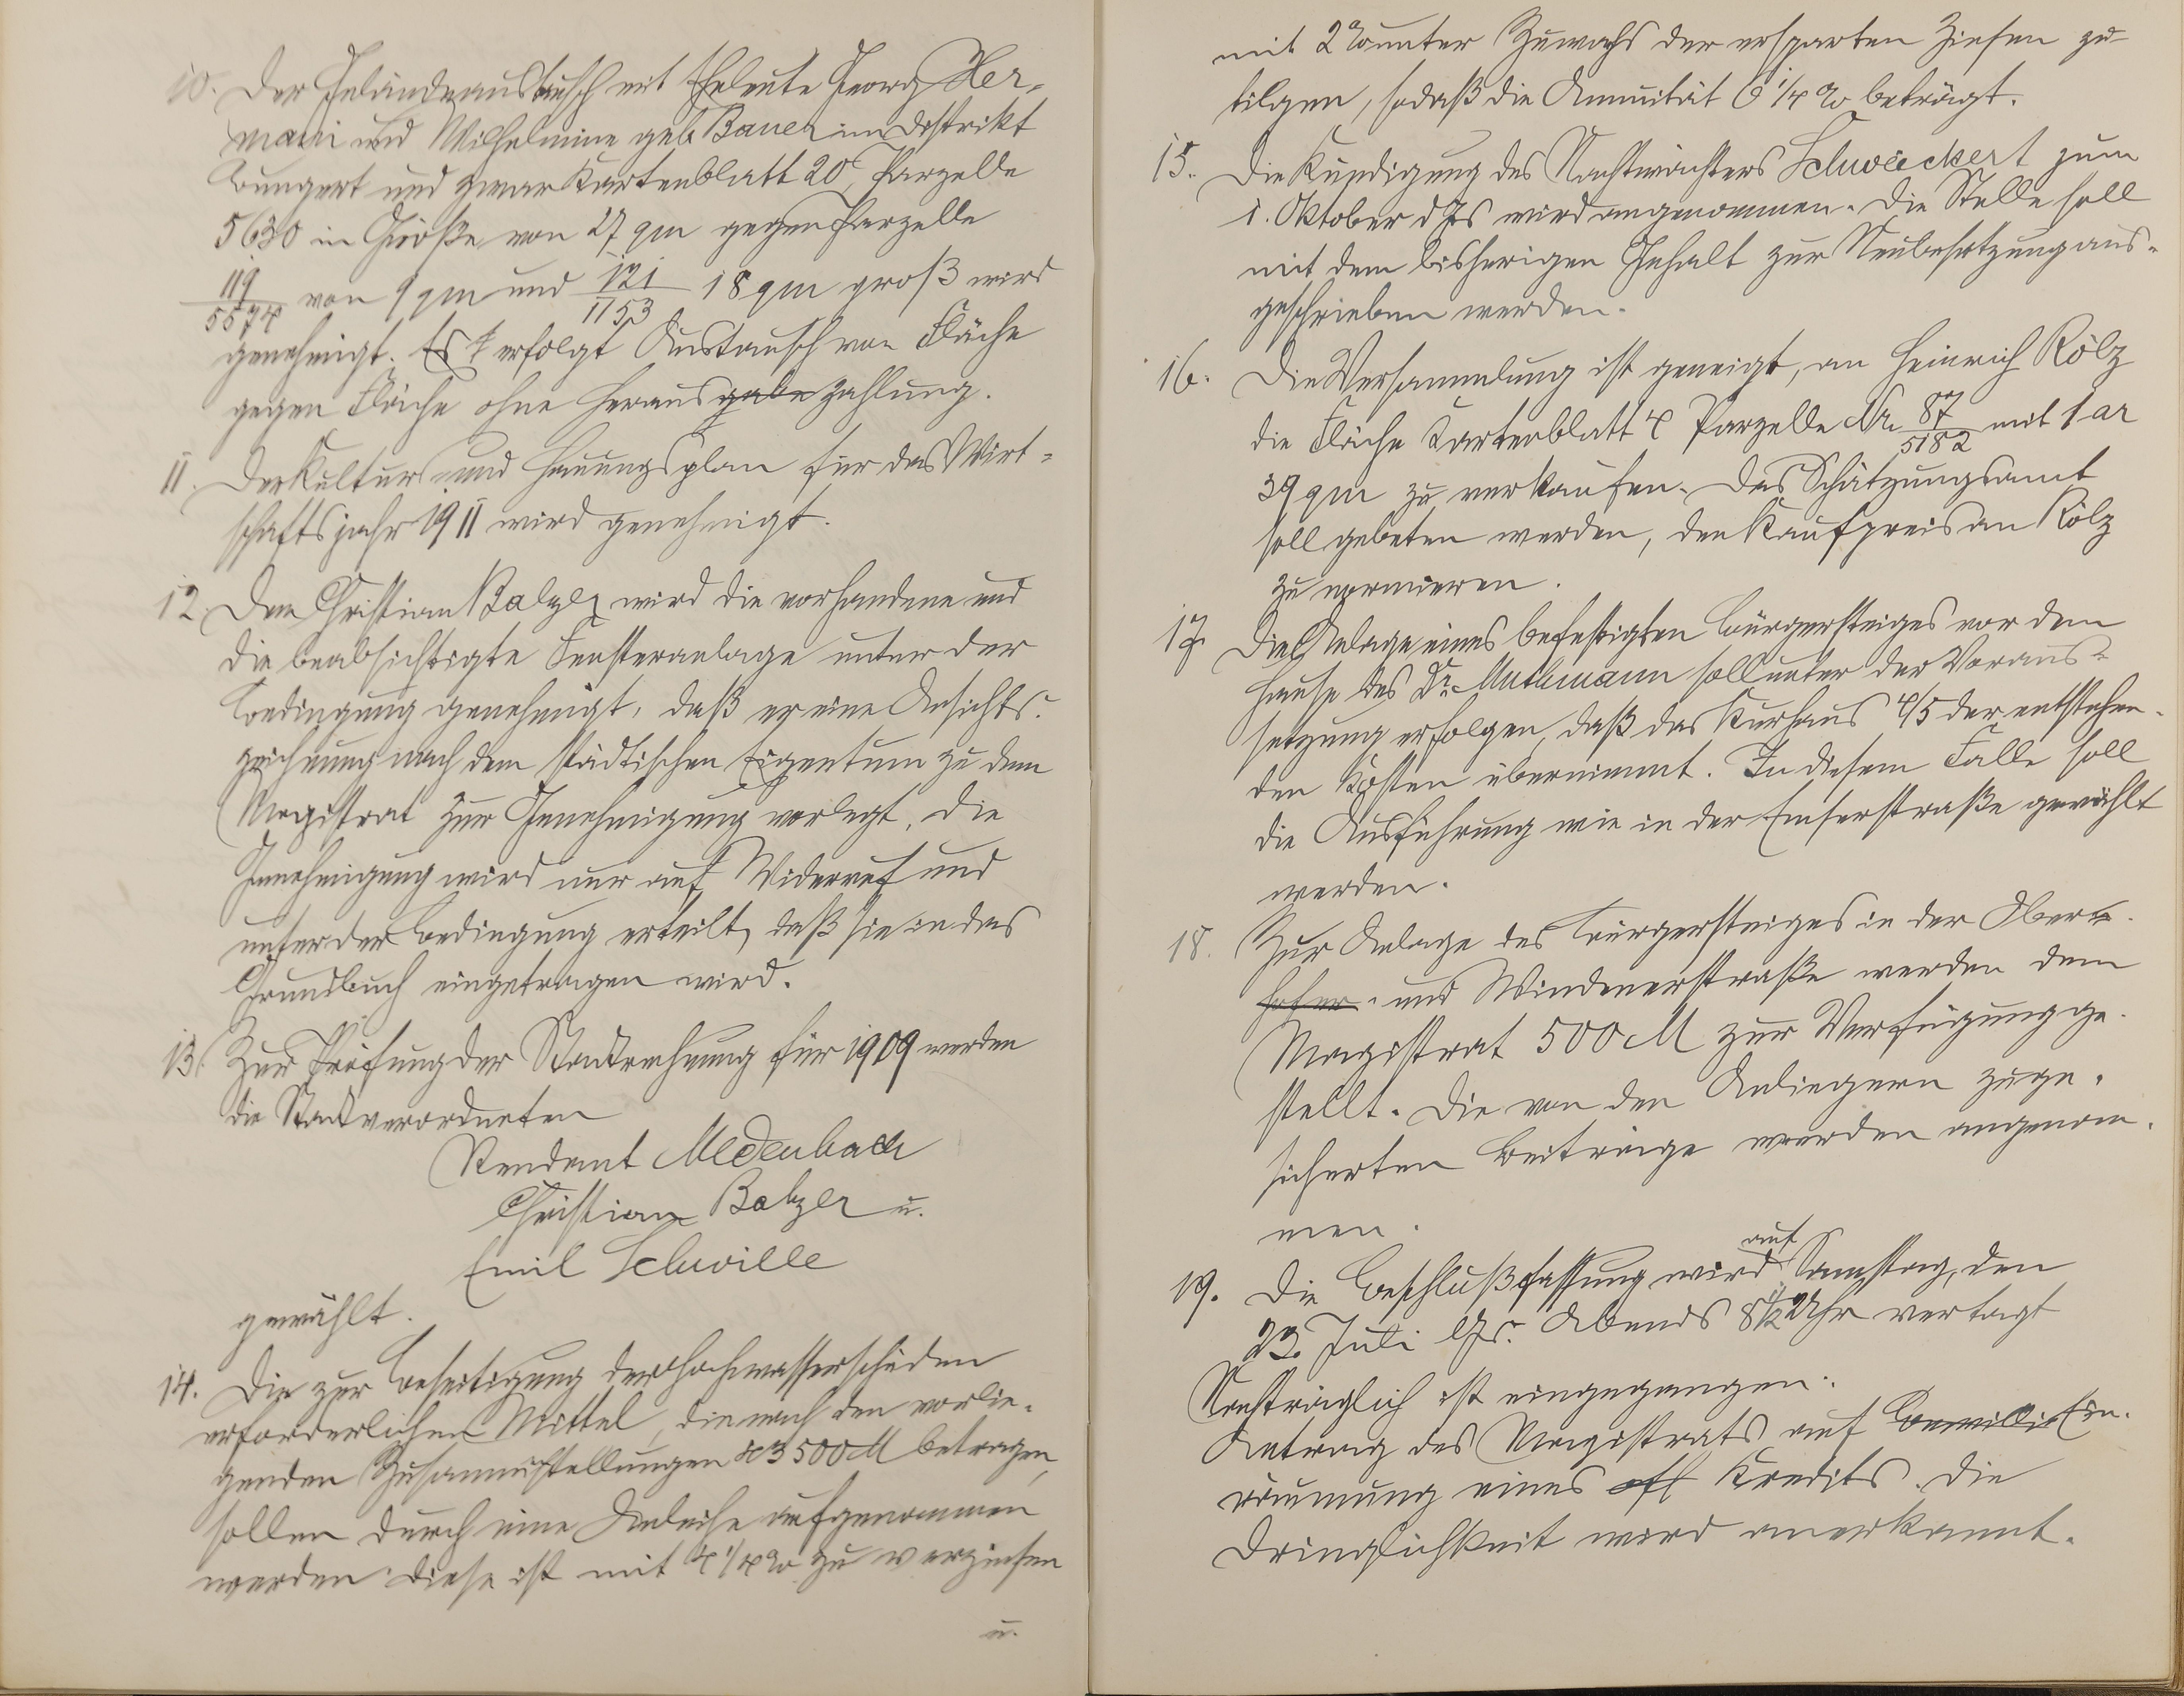 10. Der Geländeaustausch mit Eheleute Georg Her-
mani und Wilhelmine geb. Bauer im Distrikt
Bungert und zwar Kartenblatt 20, Parzelle
5630 in Größe von 27 qm gegen Parzelle
119/5574 von 9 qm und 121/1153 18 qm groß wird
genehmigt. Es erfolgt Austausch von Fläche
gegen Fläche ohne Herausgabezahlung.
11. Der Kultur- und Hauungsplan für das Wirt-
schaftsjahr 1911 wird genehmigt.
12. Dem Christian Balzer wird die vorhandene und
die beabsichtigte Fensteranlage unter der
Bedingung genehmigt, daß er eine Ansichts-
zeichnung nach dem städtischen Eigentum zu dem
Magistrat zur Genehmigung vorlegt. Die
Genehmigung wird nur auf Widerruf und
unter der Bedingung erteilt, daß sie in das
Grundbuch eingetragen wird.
13. Zur Prüfung der Stadtrechnung für 1909 werden
die Stadtverordneten
Rendant Medenbach
Christian Balzer u.
Emil Schwille
gewählt.
14. Die zur Beseitigung der Hochwasserschäden
erforderlichen Mittel, die nach den vorlie-
genden Zusammenstellungen 3500 M betragen,
sollen durch eine Anleihe aufgenommen
werden. Diese ist mit 4 1/4 % zu verzinsen
u.
mit 2 % unter Zuwachs der ersparten Zinsen zu
tilgen, sodaß die Annuität 6 1/4 % beträgt.
15. Die Kündigung des Nachtwächters Schweickert zum
1. Oktober d Js wird angenommen. Die Stelle soll
mit dem bisherigen Gehalt zur Neubesetzung aus-
geschrieben werden.
16. Die Versammlung ist geneigt, an Heinrich Kölz
die Fläche Kartenblatt 4 Parzelle Nr. 87/5182 mit 1 ar
39 qm zu verkaufen. Das Schätzungsamt
soll gebeten werden, den Kaufpreis an Kölz
zu normieren.
17. Die Anlage eines befestigten Bürgersteiges vor dem
Hause des Dr. Muthmann soll unter der Voraus-
setzung erfolgen, daß das Kurhaus 4/5 der entstehen-
den Kosten übernimmt. In diesem Falle soll
die Ausführung wie in der Emserstraße gewählt
werden.
18. Zur Anlage des Bürgersteiges in der Obern-
hofer- und Windenerstraße werden dem
Magistrat 500 M zur Verfügung ge-
stellt. Die von den Anliegern zuge-
sicherten Beiträge werden angenom-
men.
19. Die Beschlußfassung wird auf Samstag, den
23. Juli ds Js. Abends 8 1/2 Uhr vertagt
Nachträglich ist eingegangen:
Antrag des Magistrats auf Bewillig Ein-
räumung eines Kredits. Die
Dringlichkeit wird anerkannt.